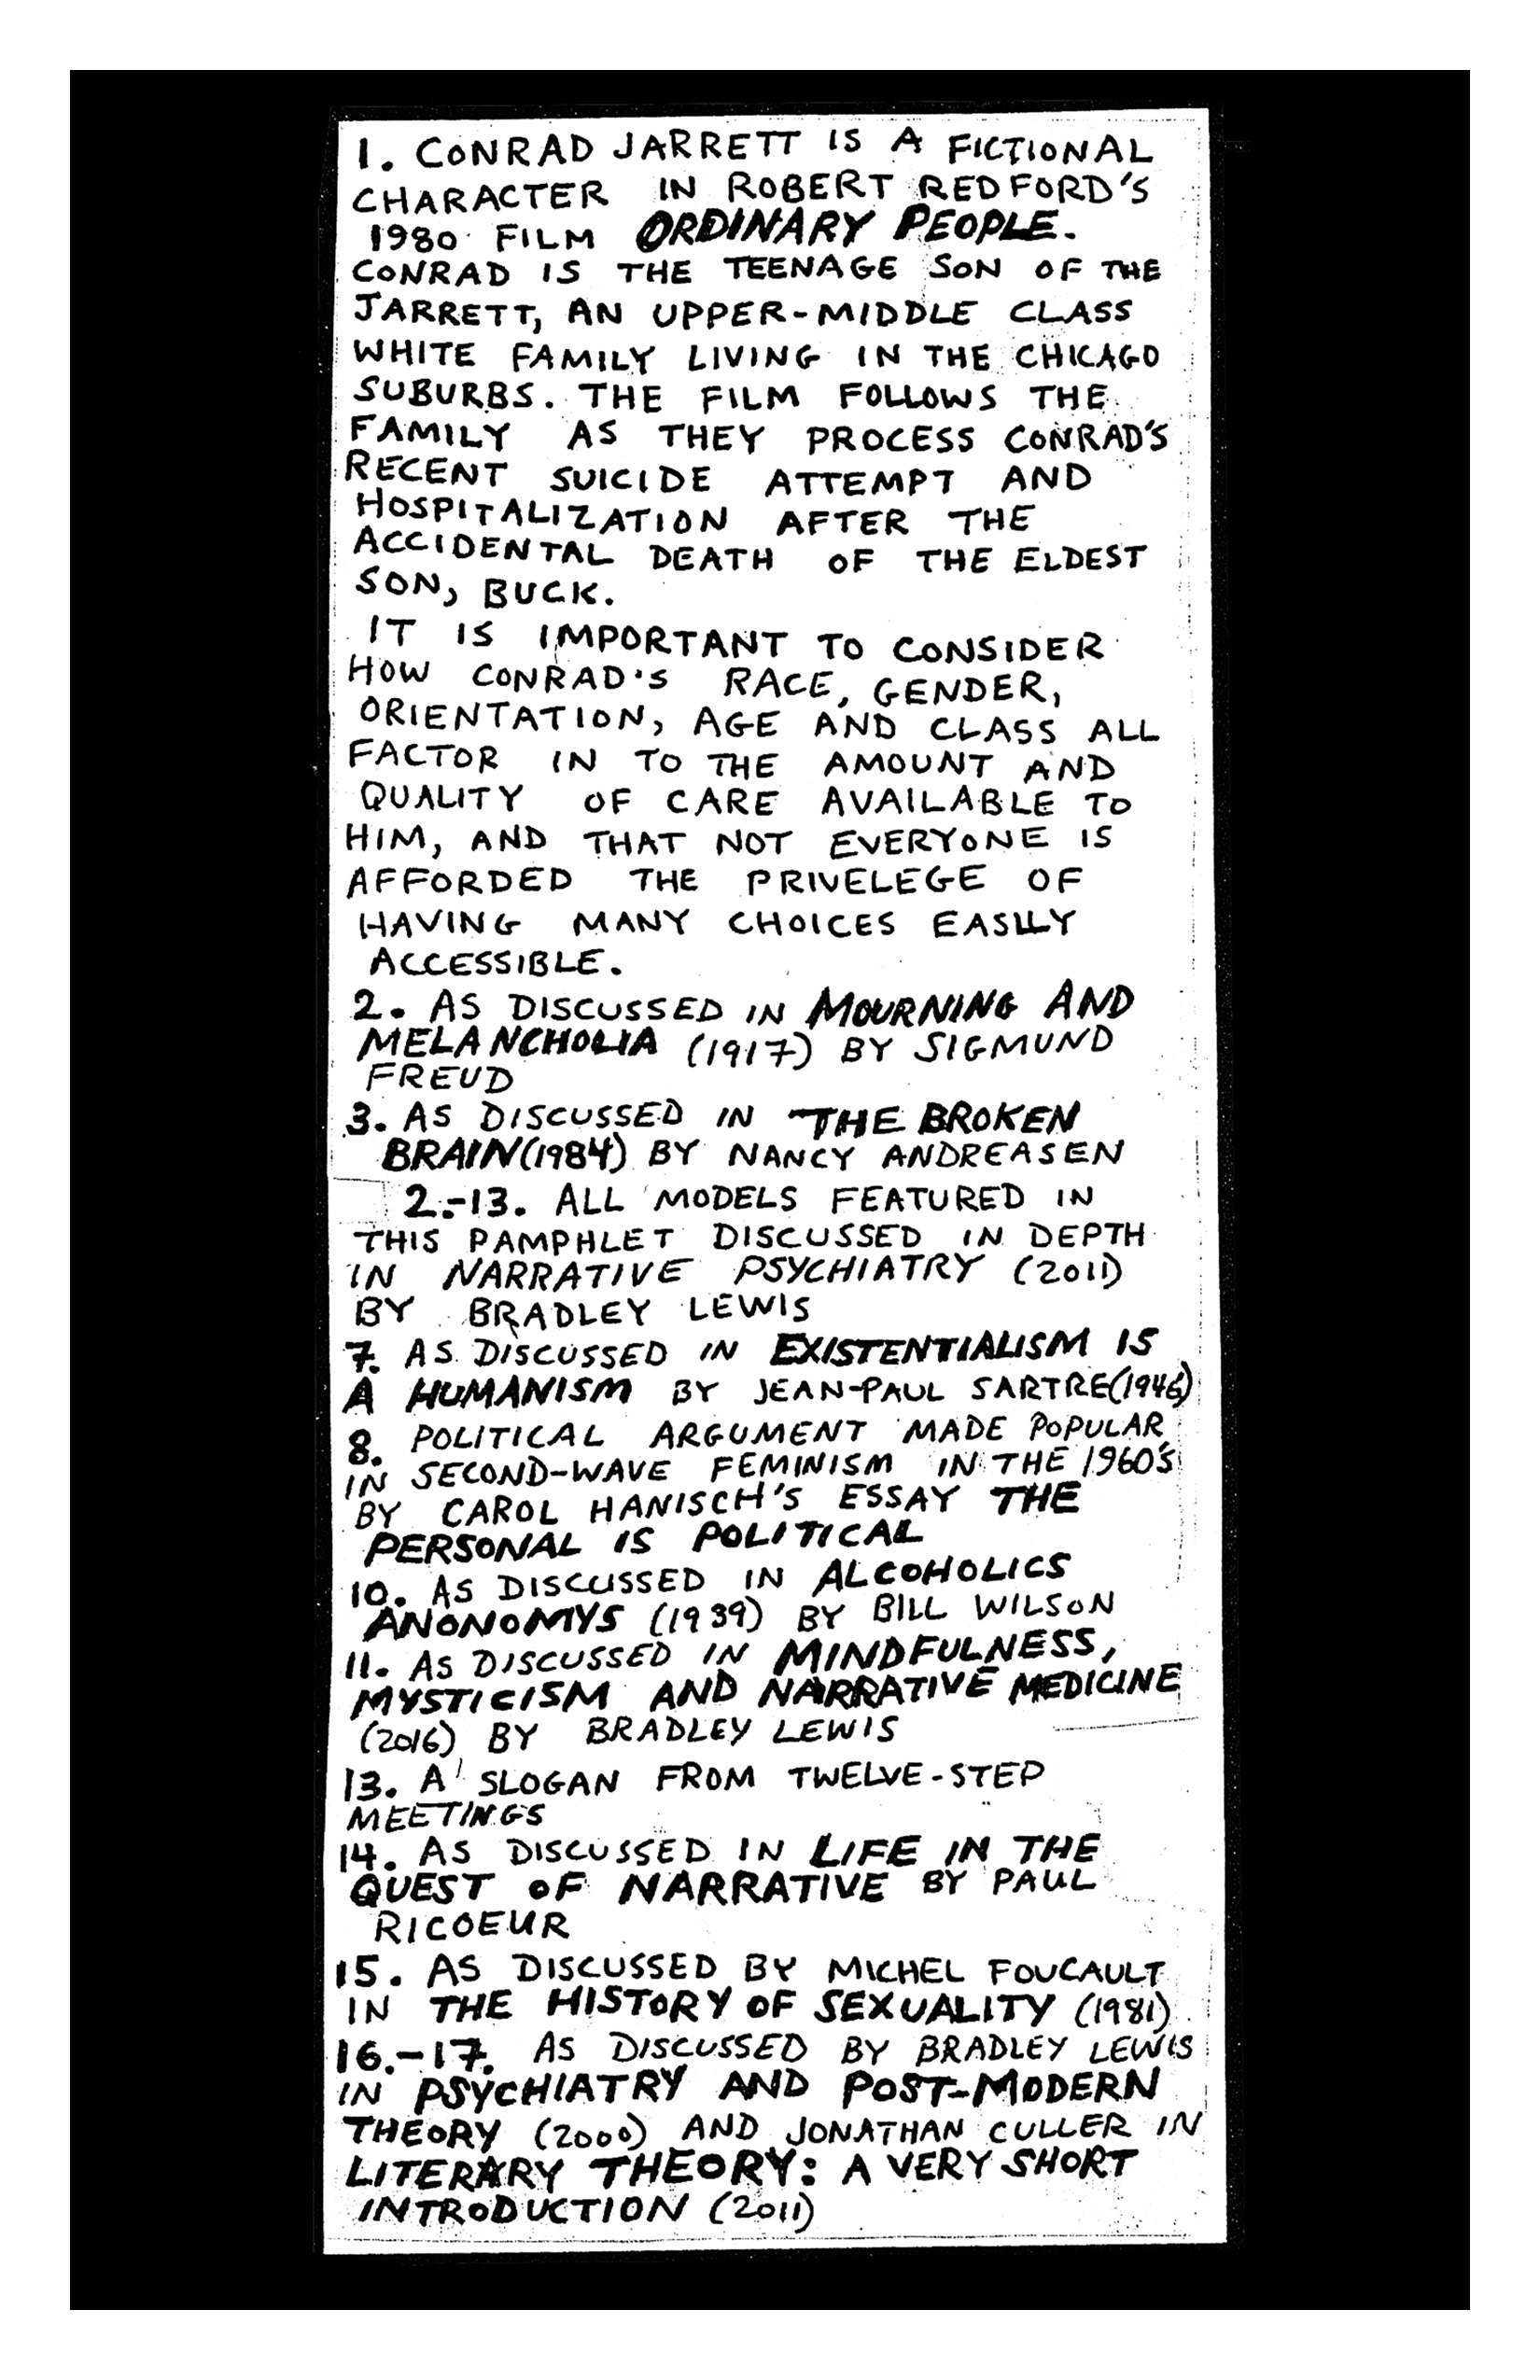 1. CONRAD JARRETT IS A FICTIONAL
CHARACTER IN ROBERT REDFORD'S
1980 FILM ORDINARY PEOPLE.
CONRAD IS THE TEENAGE SON OF THE
JARRETT, AN UPPER-MIDDLE CLASS
WHITE FAMILY LIVING IN THE CHICAGO
SUBURBS. THE FILM FOLLOWS THE
FAMILY AS THEY PROCESS CONRAD'S
RECENT SUICIDE ATTEMPT AND
HOSPITALIZATION AFTER THE
ACCIDENTAL DEATH OF THE ELDEST
SON, BUCK.
IT IS IMPORTANT TO CONSIDER
HOW CONRAD'S RACE, GENDER,
ORIENTATION, AGE AND CLASS ALL
FACTOR IN TO THE AMOUNT AND
QUALITY OF CARE AVAILABLE TO
HIM, AND THAT NOT EVERYONE IS
AFFORDED THE PRIVELEGE OF
HAVING MANY CHOICES EASILY
ACCESSIBLE.
2. AS DISCUSSED IN MOURNING AND
MELANCHOLIA (1917) BY SIGMUND
FREUD
3. AS DISCUSSED IN THE BROKEN
BRAIN (1984) BY NANCY ANDREASEN
2.-13. ALL MODELS FEATURED IN
THIS PAMPHLET DISCUSSED IN DEPTH
IN NARRATIVE PSYCHIATRY (2011)
BY BRADLEY LEWIS
7. AS DISCUSSED IN EXISTENTIALISM IS
A HUMANISM BY JEAN-PAUL SARTRE (1946)
8. POLITICAL ARGUMENT MADE POPULAR
IN SECOND-WAVE FEMINISM IN THE 1960'S
BY CAROL HANISCH'S ESSAY THE
PERSONAL IS POLITICAL
10. AS DISCUSSED IN ALCOHOLICS
ANONOMYS (1939) BY BILL WILSON
11. AS DISCUSSED IN MINDFULNESS,
MYSTICISM AND NARRATIVE MEDICINE
(2016) BY BRADLEY LEWIS
13. A SLOGAN FROM TWELVE-STEP
MEETINGS
14. AS DISCUSSED IN LIFE IN THE
QUEST OF NARRATIVE BY PAUL
RICOEUR
15. AS DISCUSSED BY MICHEL FOUCAULT
IN THE HISTORY OF SEXUALITY (1981)
16.-17. AS DISCUSSED BY BRADLEY LEWIS
IN PSYCHIATRY AND POST-MODERN
THEORY (2000) AND JONATHAN CULLER IN
LITERARY THEORY: A VERY SHORT
INTRODUCTION (2011)